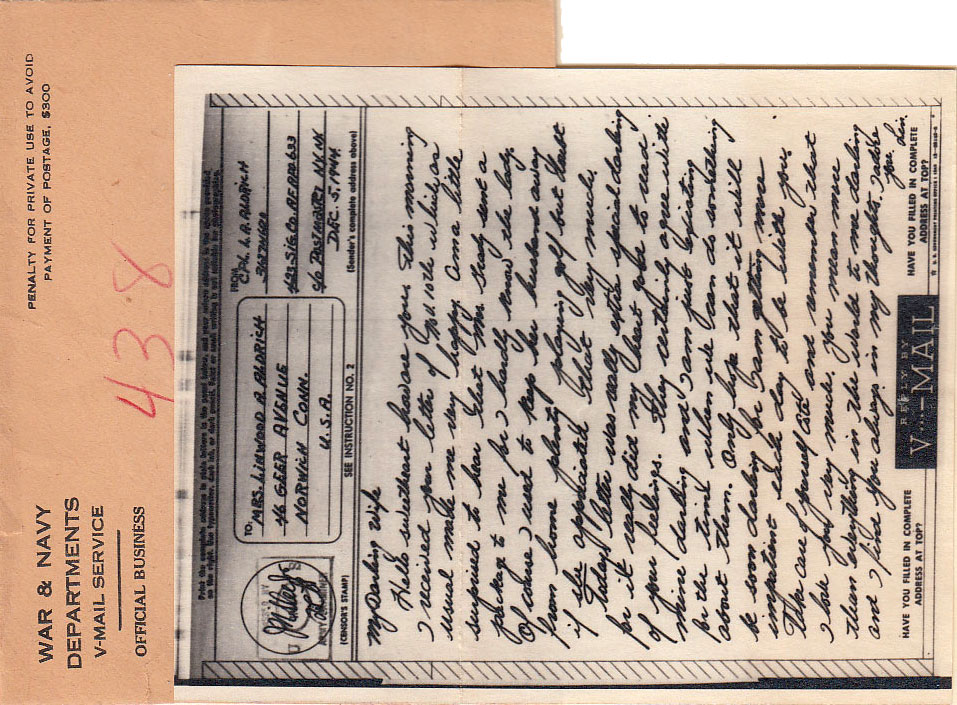 WAR & NAVY
DEPARTMENTS
V-MAIL SERVICE
OFFICIAL BUSINESS
PENALTY FOR PRIVATE USE TO AVOID
PAYMENT OF POSTAGE, $300
43.8
Print the complete address in plain letters in the panel below, and your return address in the space provided
on the right. Use typewriter, dark ink, or dark pencil. Faint or small writing is not suitable for photographing.
TO:
MRS. LINWOOD A. ALDRICH
46 GEER AVENUE
NORWICH CONN.
U.S.A.
FROM
CPL. L. A. ALDRICH
463-SIG. Co. APO 633
c/o POSTMASTER NY. NY.
DEC. 5, 1944
(CENSOR'S STAMP)
SEE INSTRUCTION NO. 2
(Sender's complete address above)
My Darling Wife
Hello sweetheart how are you. This morning
I received your letter of Nov. 10th which as
usual make me very happy. Am a little
surprised to hear that Mrs. Grady sent a
package to me for I hardly know the lady.
Of course I used to keep her husband away
from home plenty playing golf but
if she appreciated that very much.
Today's letter was really extra special darling
for it really did my heart good to read
of your feelings. They certainly agree with
mine darling and I am just existing
for the time when we can do something
about them. Only hope that it will
be soon darling for I am getting more
impatient each day to be with you.
Take care of yourself and remember that
I love you very much. You mean more
than everything in the world to me darling
and I find you always in my thoughts. I adore
you Lin.
HAVE YOU FILLED IN COMPLETE
ADDRESS AT TOP?
REPLY BY
V···—MAIL
HAVE YOU FILLED IN COMPLETE
ADDRESS AT TOP?